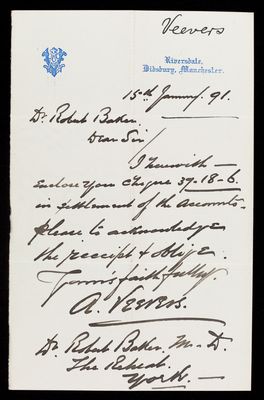 Veevers
Riversdale,
Didsbury, Manchester.
15th January. 91.
Dr. Robert Baker.
Dear Sir/
I herewith —
enclose you cheque 39-18-6
in settlement of the Accounts -
please to acknowledge
the receipt & oblige.
Yours faithfully.
A. Veevers.
Dr Robert Baker. M.D.
The Retreat.
York. —